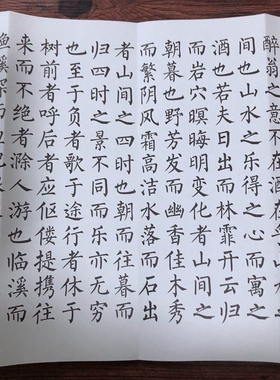 醉翁之意不在酒在乎山水之
间也山水之乐得之心而寓之
酒也若夫日出而林霏开云归
而岩穴暝晦明变化者山间之
朝暮也野芳发而幽香佳木秀
而繁阴风霜高洁水落而石出
者山间之四时也朝而往暮而
归四时之景不同而乐亦无穷
也至于负者歌于途行者休于
树前者呼后者应伛偻提携往
来而不绝者滁人游也临溪而
渔溪深而